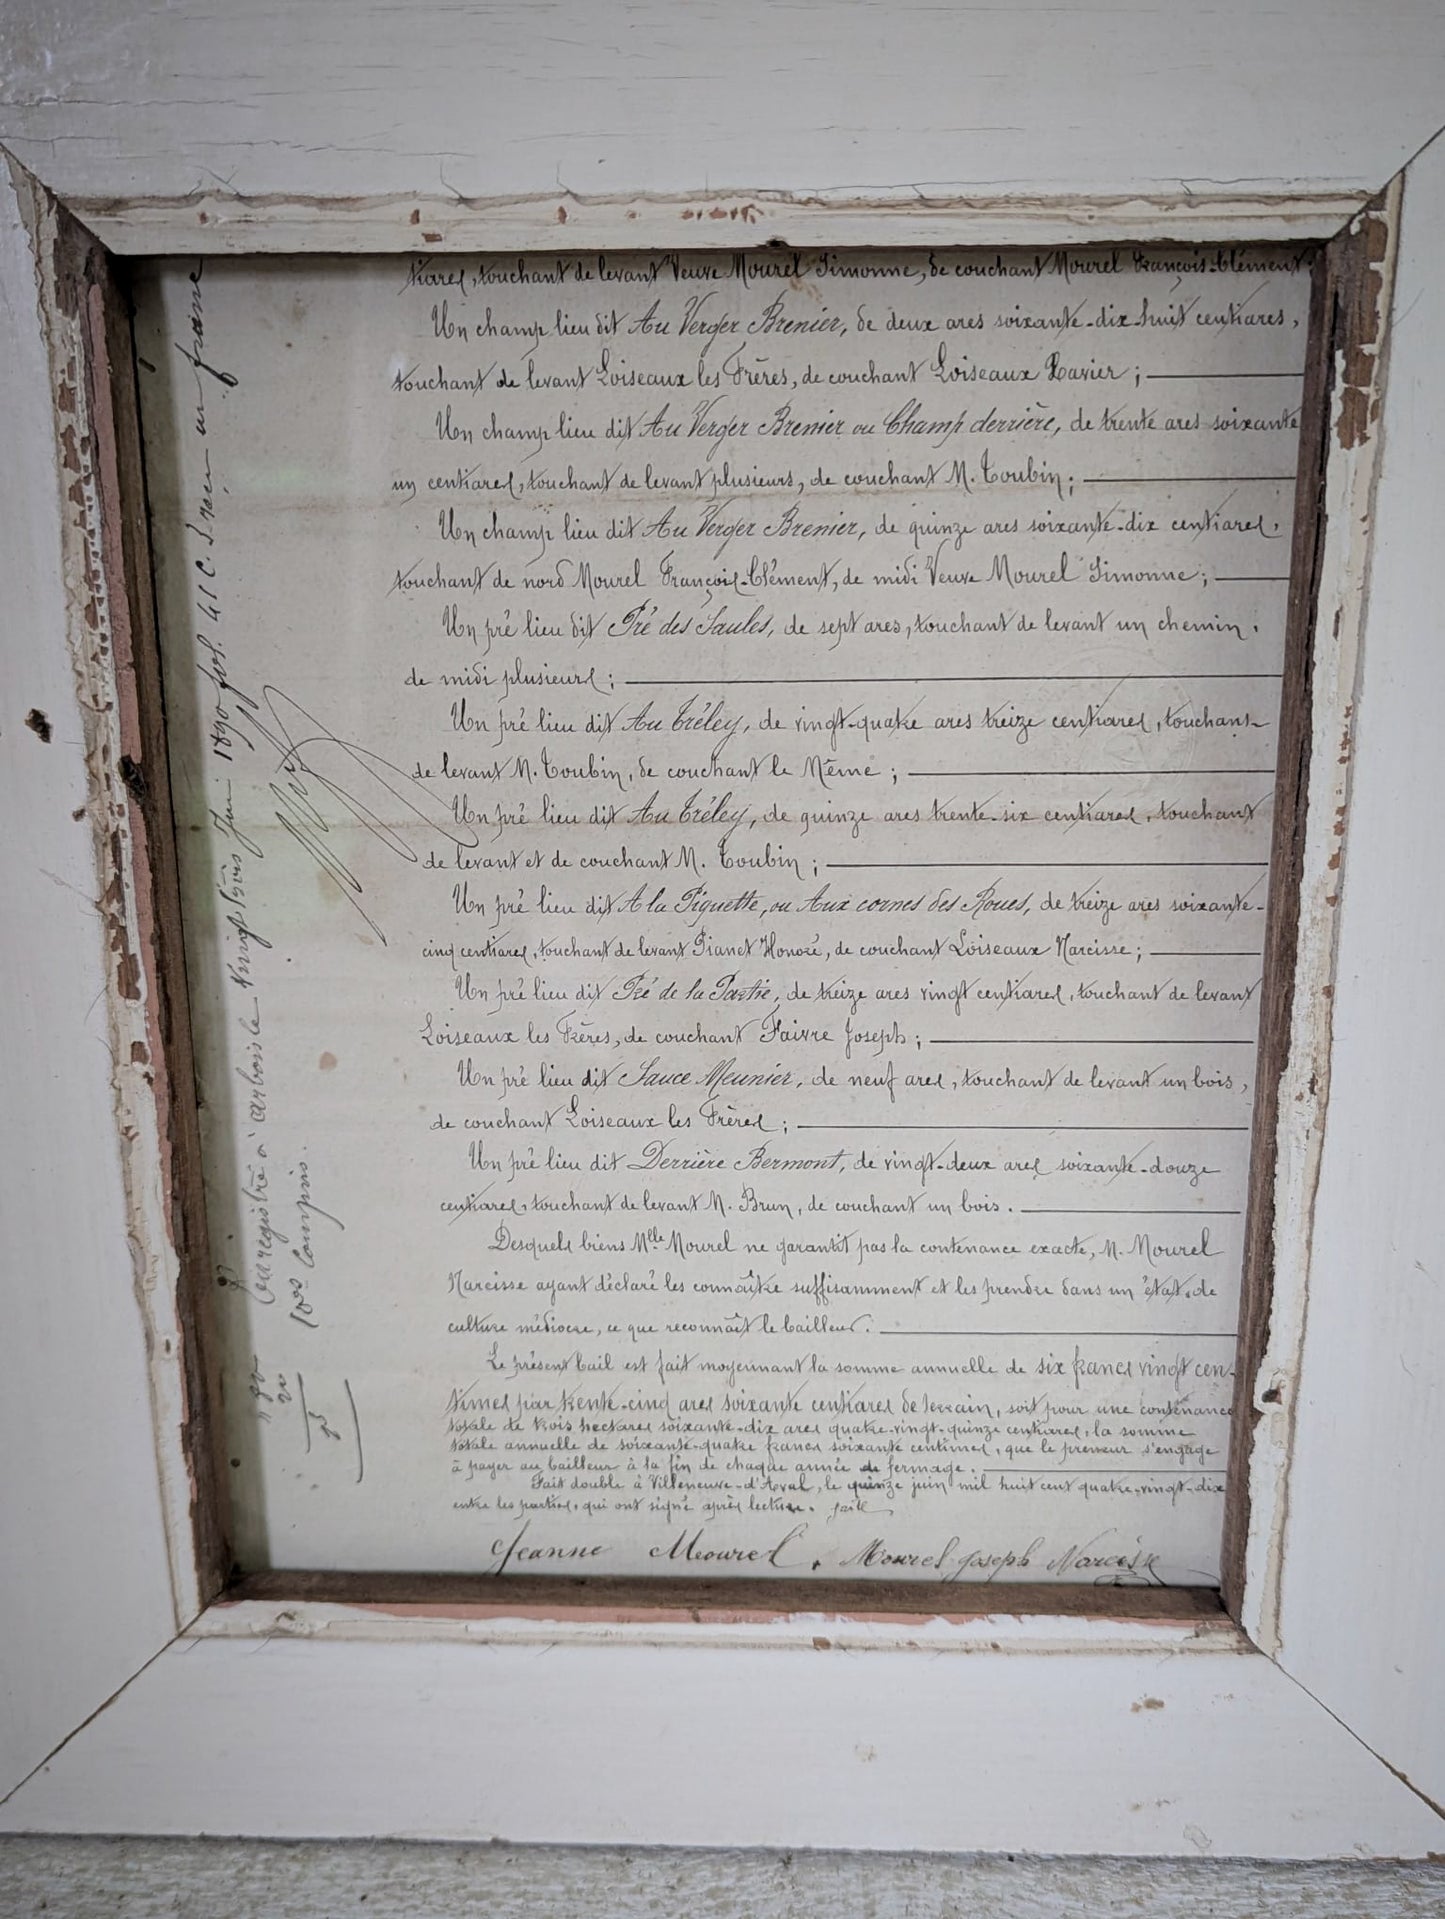 tiares, touchant de levant Veuve Mourel Simonne, de couchant Mourel François-Clément;
Un champ lieu dit Au Verger Brenier, de deux ares soixante-dix-huit centiares,
touchant de levant Loiseaux les Frères, de couchant Loiseaux Xavier;
Un champ lieu dit Au Verger Brenier ou Champ derrière, de trente ares soixante
un centiares, touchant de levant plusieurs, de couchant M. Toubin;
Un champ lieu dit Au Verger Brenier, de quinze ares soixante-dix centiares,
touchant de nord Mourel François-Clément, de midi Veuve Mourel Simonne;
Un pré lieu dit Pré des Saules, de sept ares, touchant de levant un chemin,
de midi plusieurs;
Un pré lieu dit Au Tréley, de vingt-quatre ares treize centiares, touchant
de levant M. Toubin, de couchant le Même;
Un pré lieu dit Au Tréley, de quinze ares trente-six centiares, touchant
de levant et de couchant M. Toubin;
Un pré lieu dit A la Piguette, ou Aux cornes des Roues, de treize ares soixante-
cinq centiares, touchant de levant Pianet Honoré, de couchant Loiseaux Narcisse;
Un pré lieu dit Pré de la Partie, de treize ares vingt centiares, touchant de levant
Loiseaux les Frères, de couchant Faivre Joseph;
Un pré lieu dit Sauce Meunier, de neuf ares, touchant de levant un bois,
de couchant Loiseaux les Frères;
Un pré lieu dit Derrière Bermont, de vingt-deux ares soixante-douze
centiares, touchant de levant M. Brun, de couchant un bois.
Desquels biens Mlle Mourel ne garantit pas la contenance exacte, M. Mourel
Narcisse ayant déclaré les connaître suffisamment et les prendre dans un état de
culture médiocre, ce que reconnaît le bailleur.
Le présent bail est fait moyennant la somme annuelle de six francs vingt cen-
times par trente-cinq ares soixante centiares de terrain, soit pour une contenance
totale de trois hectares soixante-dix ares quatre-vingt-quinze centiares, la somme
totale annuelle de soixante-quatre francs soixante centimes, que le preneur s'engage
à payer au bailleur à la fin de chaque année de fermage.
Fait double à Villeneuve-d'Aval, le quinze juin mil huit cent quatre-vingt-dix
entre les parties, qui ont signé après lecture faite
Jeanne Mourel. Mourel Joseph Narcisse
Enregistré à Arbois le vingt trois Juin 1890 fol. 41 C. 5 reçu un franc
10es compris.